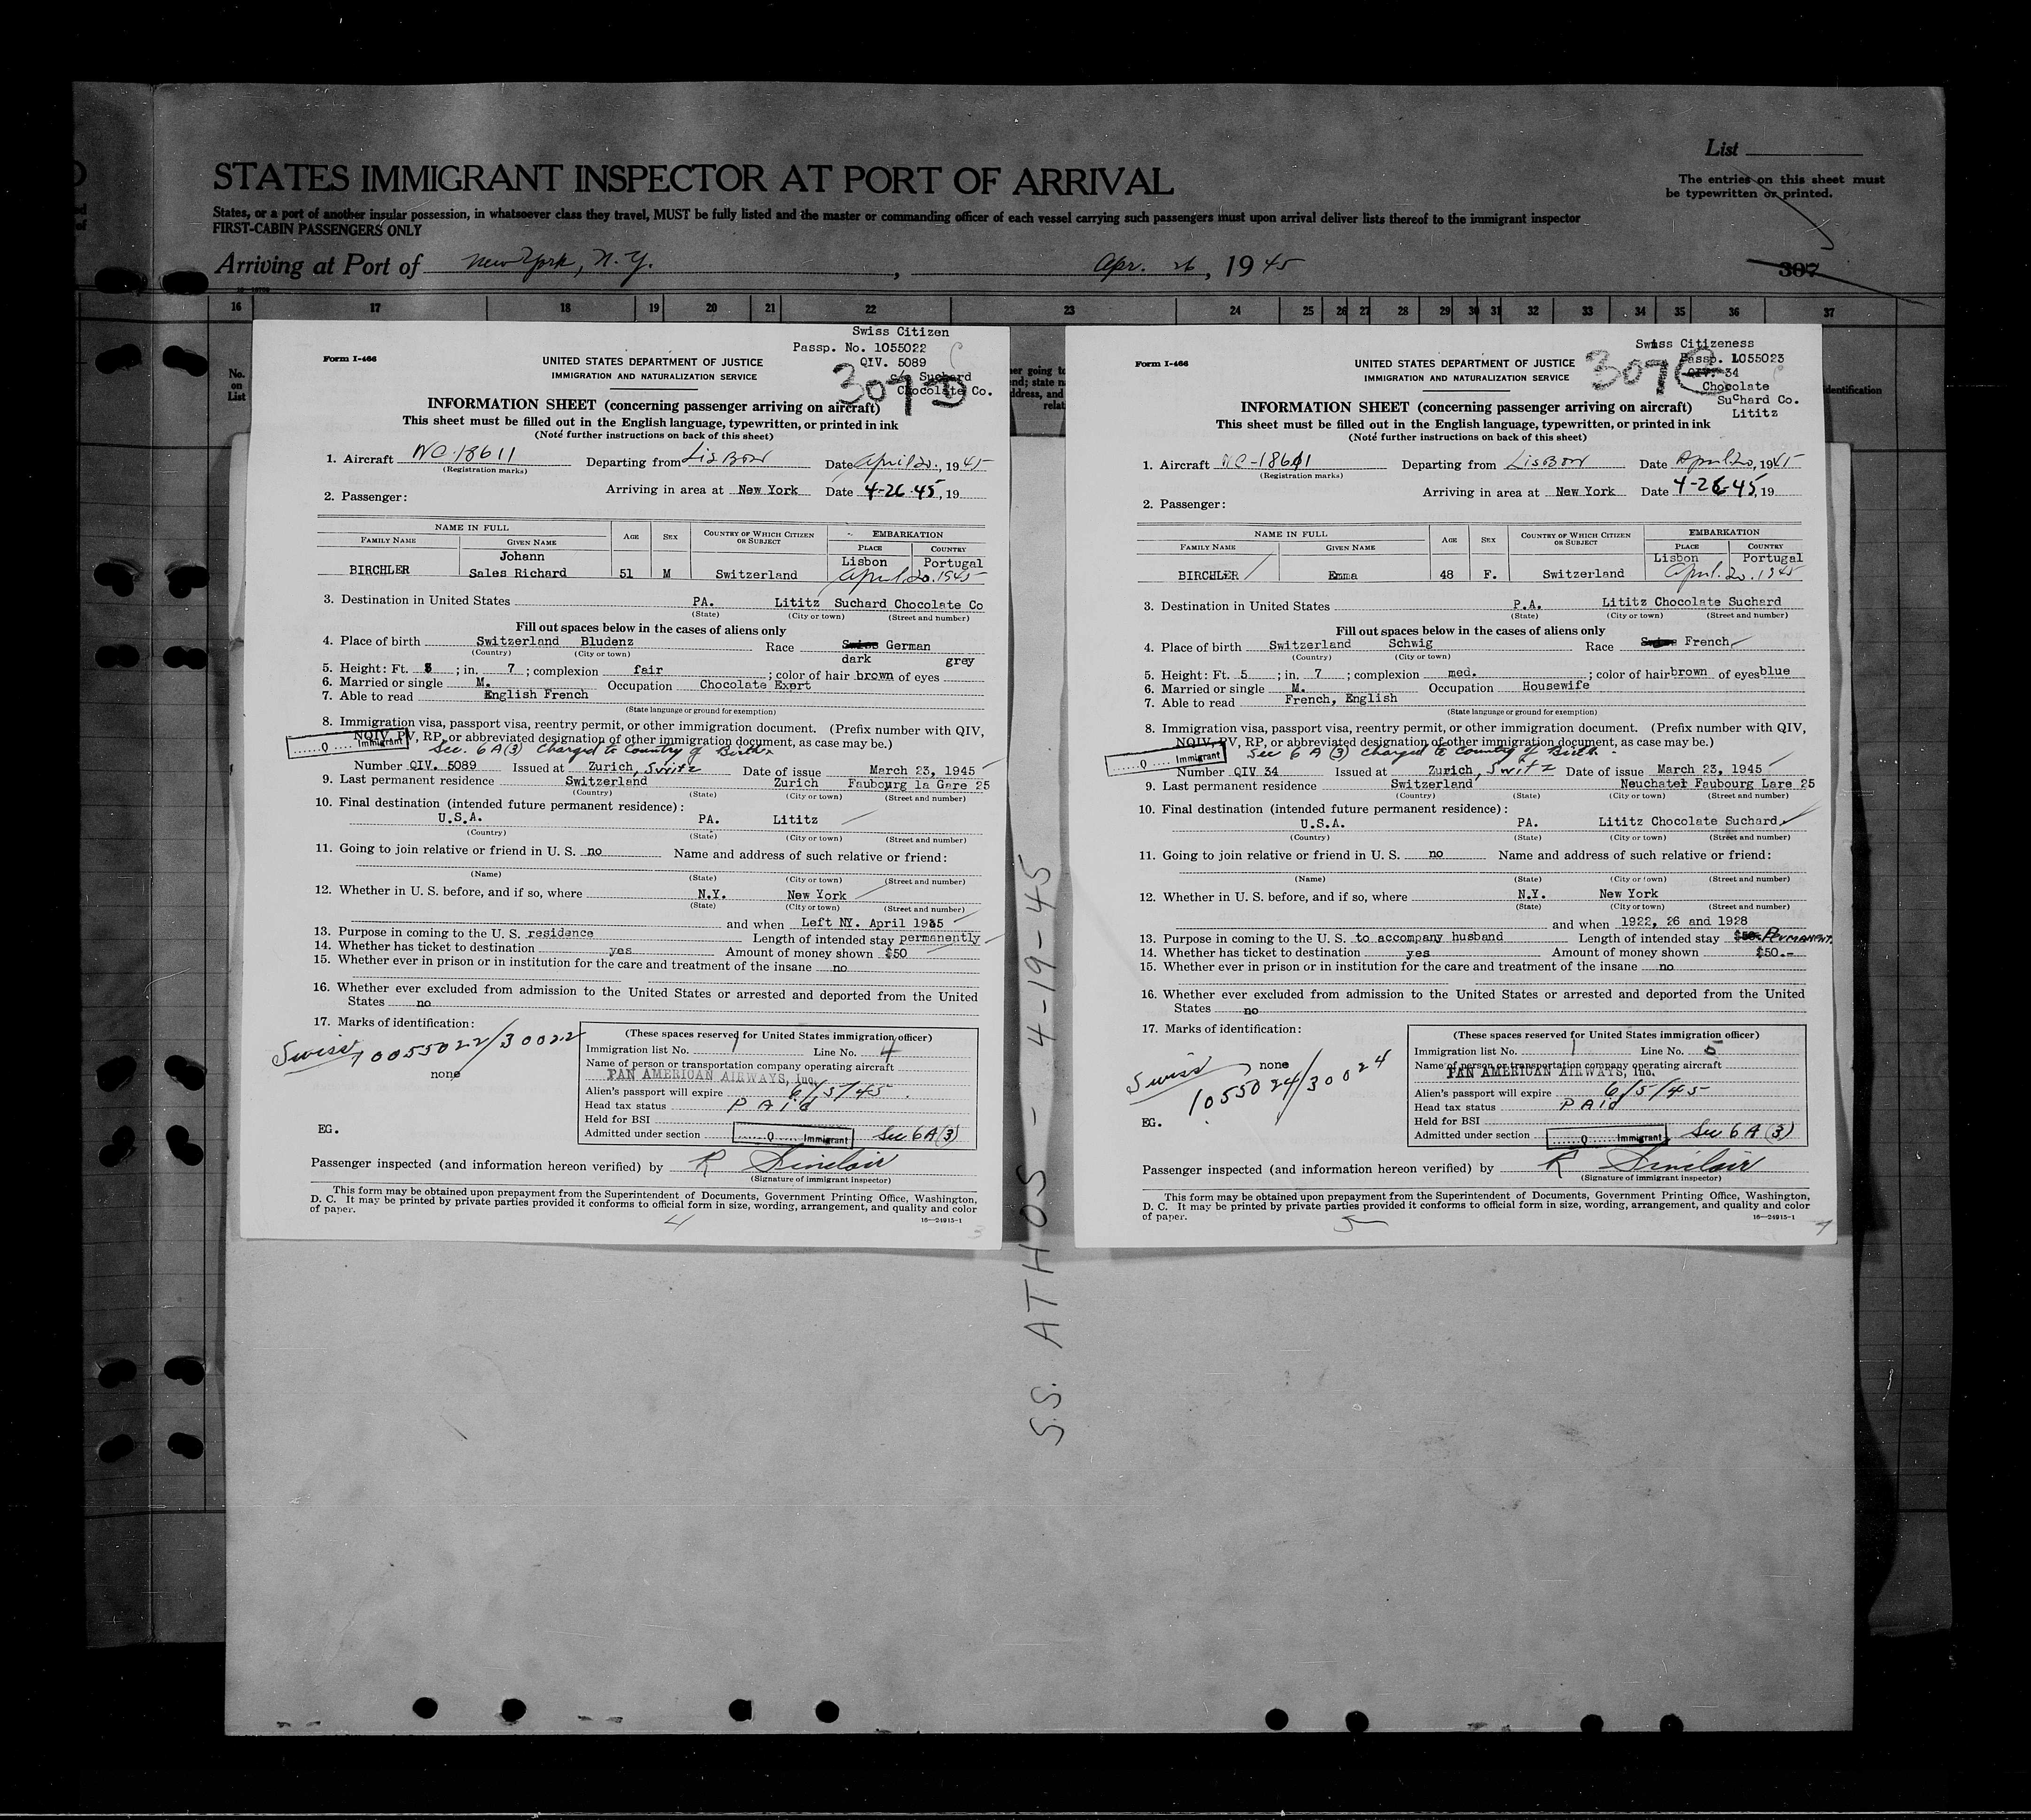 List
The entries on this sheet must
be typewritten or printed.
STATES IMMIGRANT INSPECTOR AT PORT OF ARRIVAL
States, or a port of another insular possession, in whatsoever class they travel, MUST be fully listed and the master or commanding officer of each vessel carrying such passengers must upon arrival deliver lists thereof to the immigrant inspector
FIRST-CABIN PASSENGERS ONLY
Arriving at Port of New York, N.Y. , Apr. 26, 1945
307
16 17 18 19 20 21 22 23 24 25 26 27 28 29 30 31 32 33 34 35 36 37
No.
on
List
Swiss Citizen
Passp. No. 1055022
QIV. 5089
c/o Suchard
Chocolate Co.
307 D
Form I-466
UNITED STATES DEPARTMENT OF JUSTICE
IMMIGRATION AND NATURALIZATION SERVICE
INFORMATION SHEET (concerning passenger arriving on aircraft)
This sheet must be filled out in the English language, typewritten, or printed in ink
(Note further instructions on back of this sheet)
1. Aircraft NC-18611 Departing from LisBon Date April 20, 1945
(Registration marks)
Arriving in area at New York Date 4-26-45, 19
2. Passenger:
NAME IN FULL AGE SEX COUNTRY OF WHICH CITIZEN OR SUBJECT EMBARKATION
FAMILY NAME GIVEN NAME PLACE COUNTRY
Johann Lisbon Portugal
BIRCHLER Sales Richard 51 M Switzerland April 20. 1945
3. Destination in United States PA. Lititz Suchard Chocolate Co
(State) (City or town) (Street and number)
Fill out spaces below in the cases of aliens only
4. Place of birth Switzerland Bludenz Race Swiss German
(Country) (City or town) dark grey
5. Height: Ft. 5 ; in. 7 ; complexion fair ; color of hair brown of eyes
6. Married or single M. Occupation Chocolate Exert
7. Able to read English French
(State language or ground for exemption)
8. Immigration visa, passport visa, reentry permit, or other immigration document. (Prefix number with QIV,
NQIV, PV, RP, or abbreviated designation of other immigration document, as case may be.)
......Q.... Immigrant Sec. 6A(3) Charged to Country of Birth
Number QIV. 5089 Issued at Zurich, Switz Date of issue March 23, 1945
9. Last permanent residence Switzerland Zurich Faubourg la Gare 25
(Country) (State) (City or town) (Street and number)
10. Final destination (intended future permanent residence):
U.S.A. PA. Lititz
(Country) (State) (City or town) (Street and number)
11. Going to join relative or friend in U. S. no Name and address of such relative or friend:
(Name) (State) (City or town) (Street and number)
12. Whether in U. S. before, and if so, where N.Y. New York
(State) (City or town) (Street and number)
and when Left NY. April 1935
13. Purpose in coming to the U. S. residence Length of intended stay permanently
14. Whether has ticket to destination yes Amount of money shown $50
15. Whether ever in prison or in institution for the care and treatment of the insane no
16. Whether ever excluded from admission to the United States or arrested and deported from the United
States no
17. Marks of identification:
Swiss 10055022/30022
none
EG.
(These spaces reserved for United States immigration officer)
Immigration list No. 1 Line No. 4
Name of person or transportation company operating aircraft
PAN AMERICAN AIRWAYS, Inc.
Alien's passport will expire 6/5/45
Head tax status PAid
Held for BSI
Admitted under section ......Q..... Immigrant Sec 6A(3)
Passenger inspected (and information hereon verified) by R Sinclair
(Signature of immigrant inspector)
This form may be obtained upon prepayment from the Superintendent of Documents, Government Printing Office, Washington,
D. C. It may be printed by private parties provided it conforms to official form in size, wording, arrangement, and quality and color
of paper.
16—24915-1
4
3
S.S. ATHOS - 4-19-45
Swiss Citizeness
Passp. 1055023
QIV. 34
Chocolate
Suchard Co.
Lititz
307 E
Form I-466
UNITED STATES DEPARTMENT OF JUSTICE
IMMIGRATION AND NATURALIZATION SERVICE
INFORMATION SHEET (concerning passenger arriving on aircraft)
This sheet must be filled out in the English language, typewritten, or printed in ink
(Note further instructions on back of this sheet)
1. Aircraft NC-18611 Departing from LisBon Date April 20, 1945
(Registration marks)
Arriving in area at New York Date 4-26-45, 19
2. Passenger:
NAME IN FULL AGE SEX COUNTRY OF WHICH CITIZEN OR SUBJECT EMBARKATION
FAMILY NAME GIVEN NAME PLACE COUNTRY
Lisbon Portugal
BIRCHLER Emma 48 F. Switzerland April. 20. 1945
3. Destination in United States P.A. Lititz Chocolate Suchard
(State) (City or town) (Street and number)
Fill out spaces below in the cases of aliens only
4. Place of birth Switzerland Schwig Race Swiss French
(Country) (City or town)
5. Height: Ft. 5 ; in. 7 ; complexion med. ; color of hair brown of eyes blue
6. Married or single M. Occupation Housewife
7. Able to read French, English
(State language or ground for exemption)
8. Immigration visa, passport visa, reentry permit, or other immigration document. (Prefix number with QIV,
NQIV, PV, RP, or abbreviated designation of other immigration document, as case may be.)
......Q.... Immigrant Sec 6 A (3) Charged to Country of Birth
Number QIV 34 Issued at Zurich, Switz Date of issue March 23, 1945
9. Last permanent residence Switzerland Neuchatel Faubourg Lare 25
(Country) (State) (City or town) (Street and number)
10. Final destination (intended future permanent residence):
U.S.A. PA. Lititz Chocolate Suchard
(Country) (State) (City or town) (Street and number)
11. Going to join relative or friend in U. S. no Name and address of such relative or friend:
(Name) (State) (City or town) (Street and number)
12. Whether in U. S. before, and if so, where N.Y. New York
(State) (City or town) (Street and number)
and when 1922, 26 and 1928
13. Purpose in coming to the U. S. to accompany husband Length of intended stay $50.- PERMANENT.
14. Whether has ticket to destination yes Amount of money shown $50.-
15. Whether ever in prison or in institution for the care and treatment of the insane no
16. Whether ever excluded from admission to the United States or arrested and deported from the United
States no
17. Marks of identification:
none
Swiss 1055024/30024
EG.
(These spaces reserved for United States immigration officer)
Immigration list No. 1 Line No. 5
Name of person or transportation company operating aircraft
PAN AMERICAN AIRWAYS, Inc.
Alien's passport will expire 6/5/45
Head tax status PAid
Held for BSI
Admitted under section ......Q...... Immigrant Sec 6A(3)
Passenger inspected (and information hereon verified) by R Sinclair
(Signature of immigrant inspector)
This form may be obtained upon prepayment from the Superintendent of Documents, Government Printing Office, Washington,
D. C. It may be printed by private parties provided it conforms to official form in size, wording, arrangement, and quality and color
of paper.
16—24915-1
5